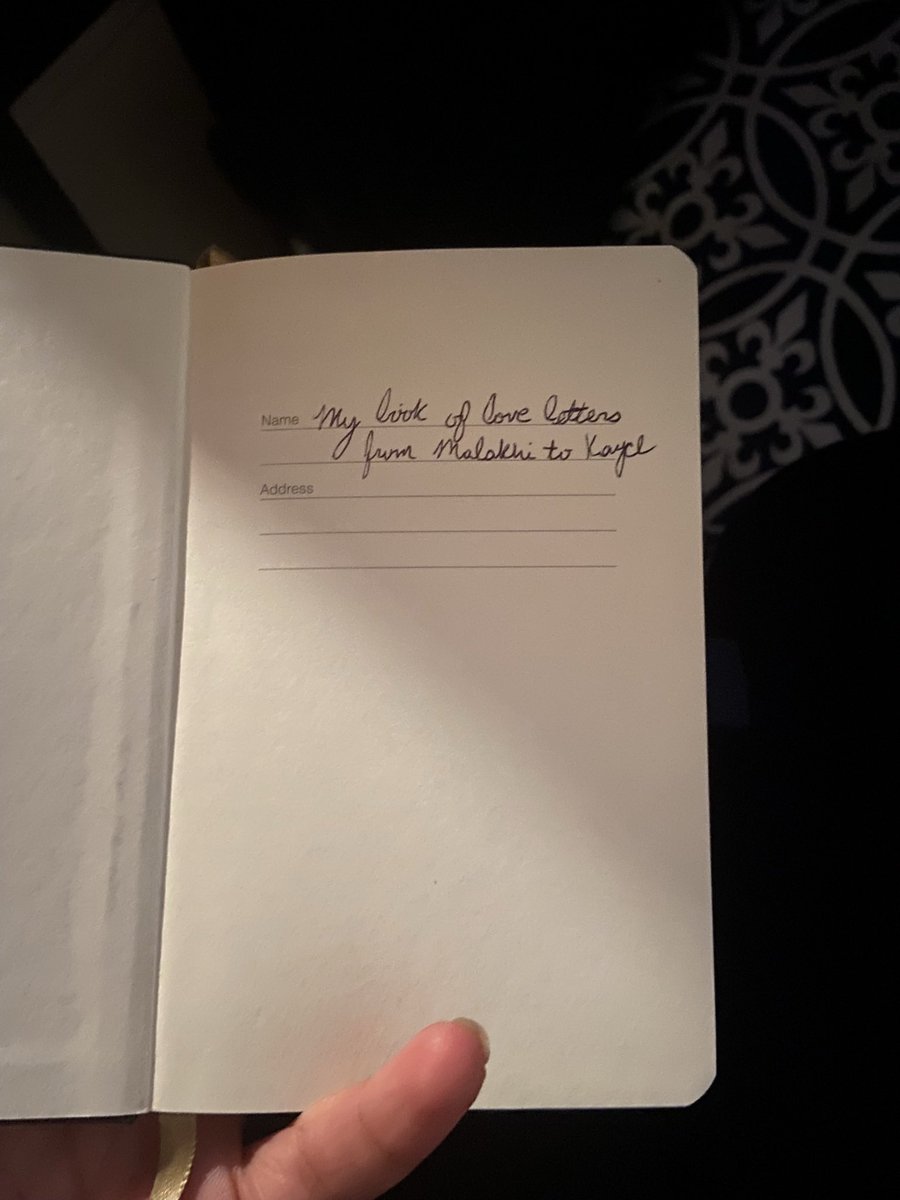 Name My book of love letters
from Malakhi to Kayel
Address